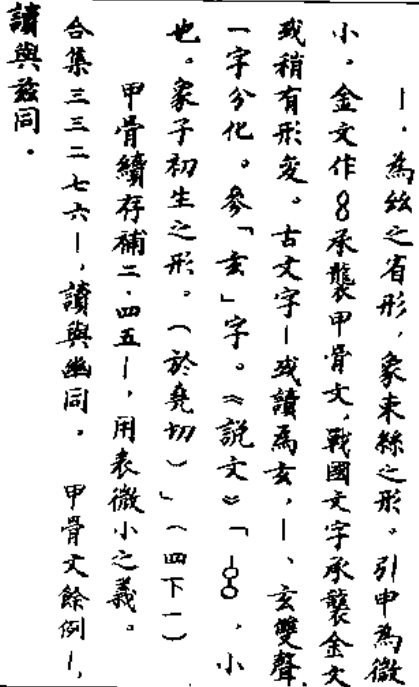 ｜，為絲之省形，象束絲之形。引申為微
小。金文作8承襲甲骨文，戰國文字承襲金文
或稍有形變。古文字｜或讀為玄，｜、玄雙聲，
一字分化。參「玄」字。《說文》「｜，小
也。象子初生之形。（於堯切）」（四下一）
甲骨續存補二．四五｜，用表微小之義。
合集三三二七六｜，讀與幽同。 甲骨文餘例｜，
讀與茲同．